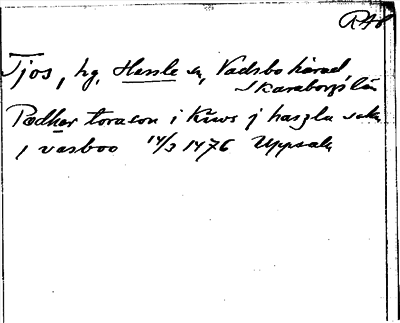 RAp
Tjos, hg, Hassle sn, Vadsbo härad
Skaraborgs län
Pædhar torason i Kiws j haszla sokn
j vasboo 14/3 1476 Uppsala